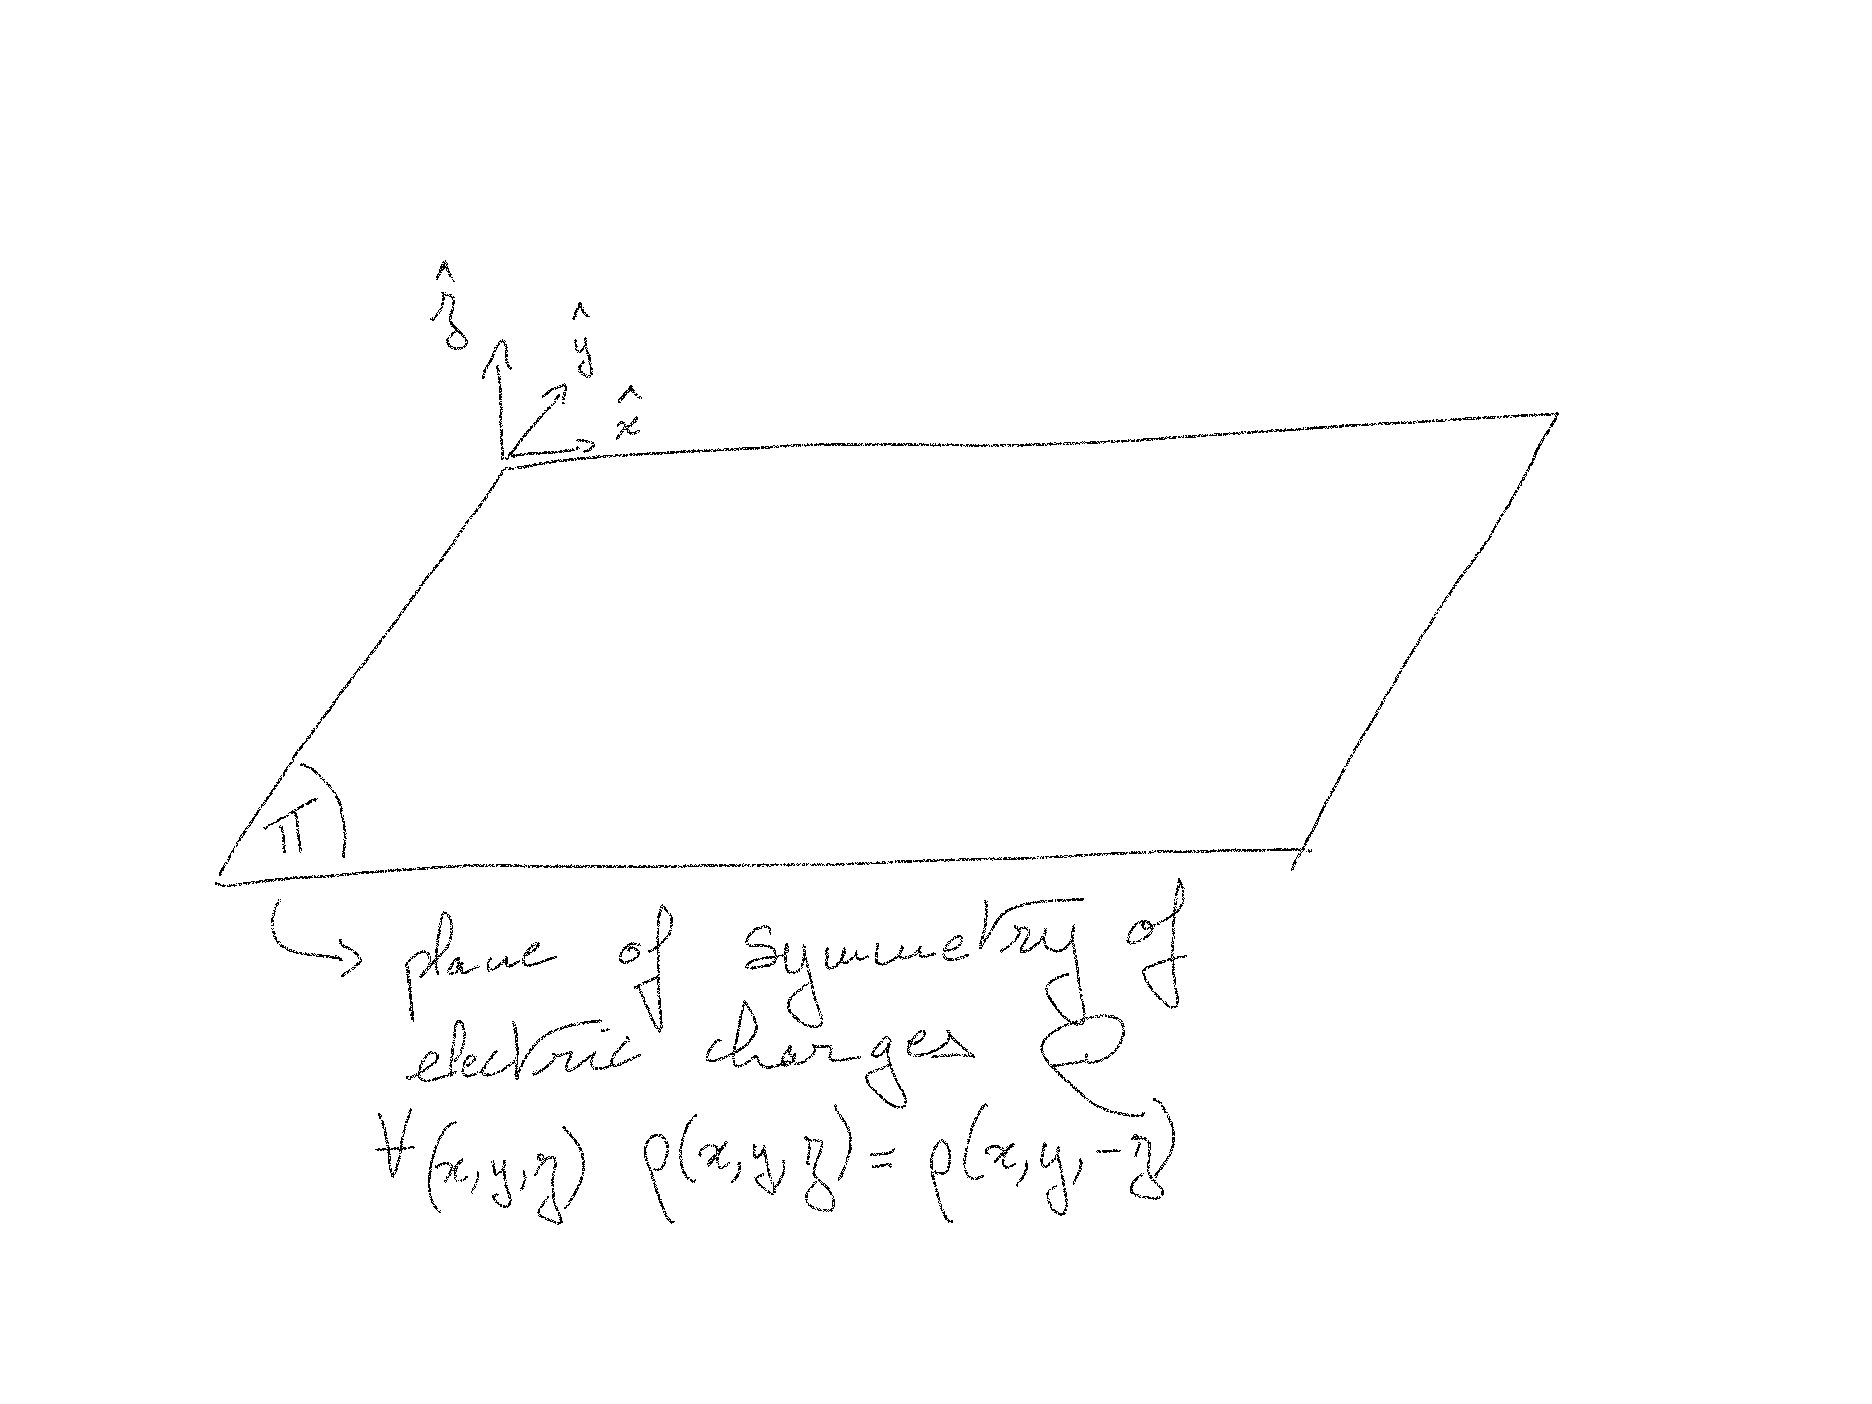 ẑ
ŷ
x̂
π
plane of symmetry of
electric charges
∀(x,y,z) ρ(x,y,z) = ρ(x,y,-z)